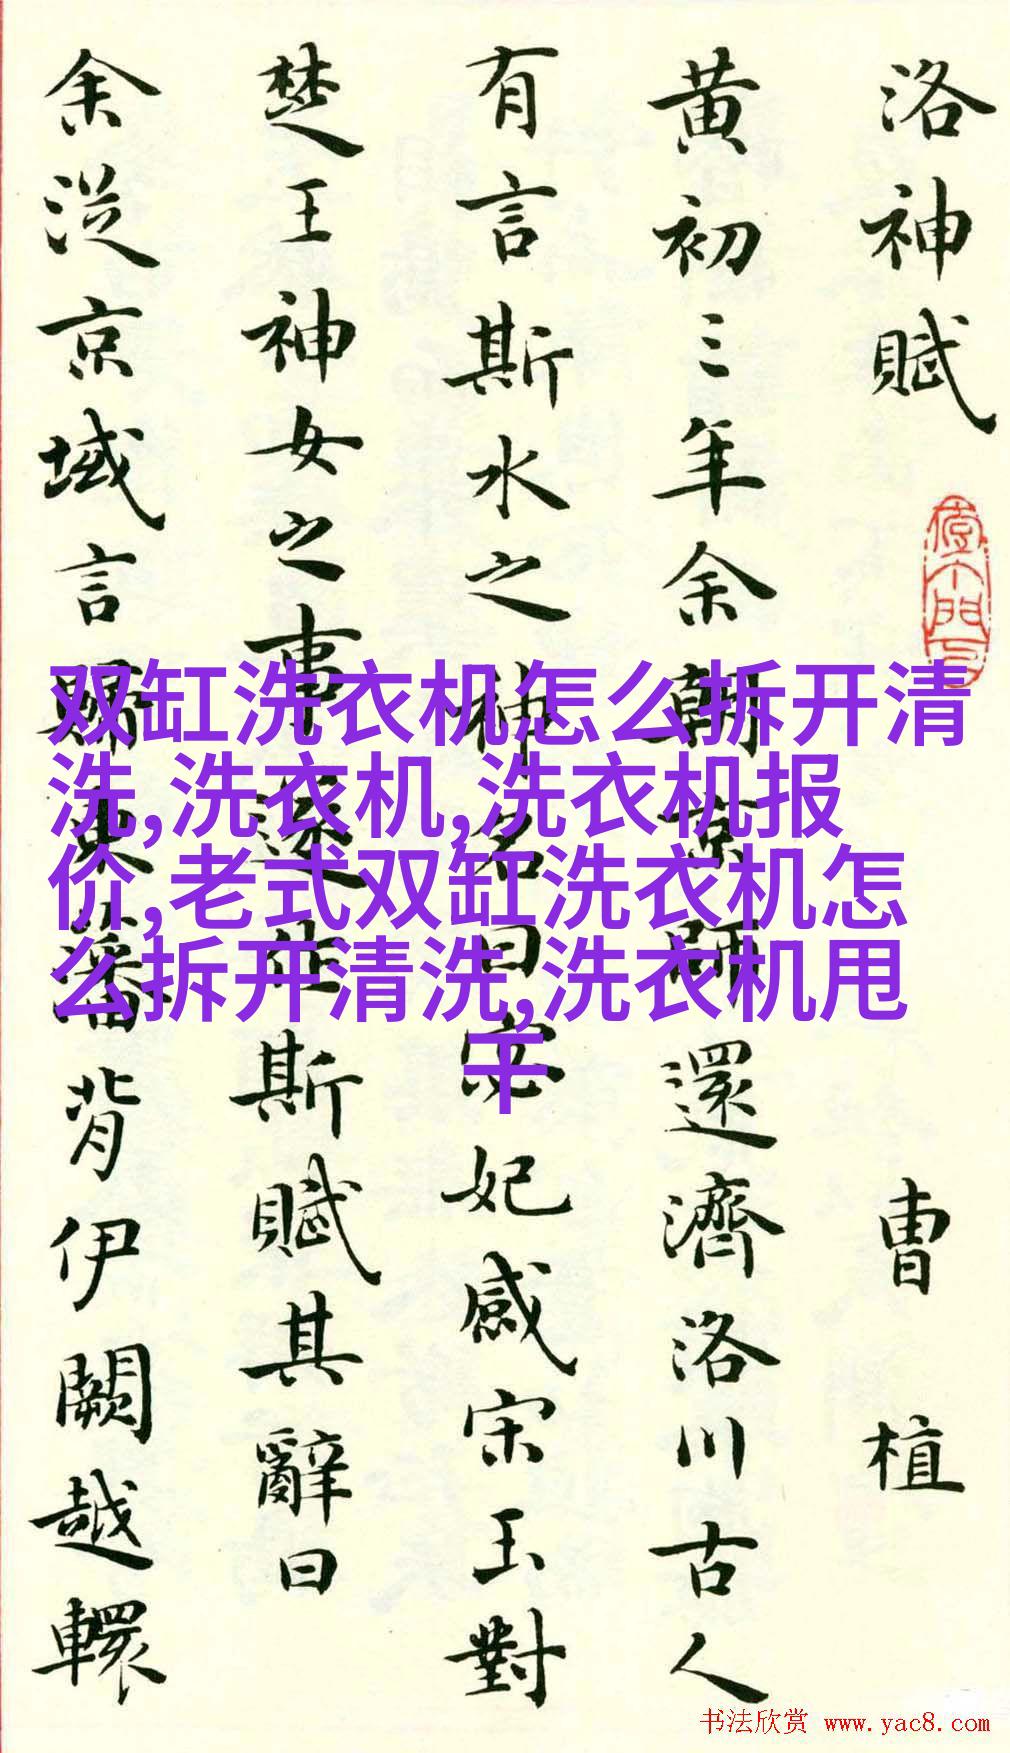 洛神賦 曹植
黄初三年余朝京師還濟洛川古人
有言斯水之神名曰宓妃感宋玉對
楚王神女之事遂作斯賦其辭曰
余從京域言歸東藩背伊闕越轘
双缸洗衣机怎么拆开清
洗,洗衣机,洗衣机报
价,老式双缸洗衣机怎
么拆开清洗,洗衣机甩
干
书法欣赏 www.yac8.com